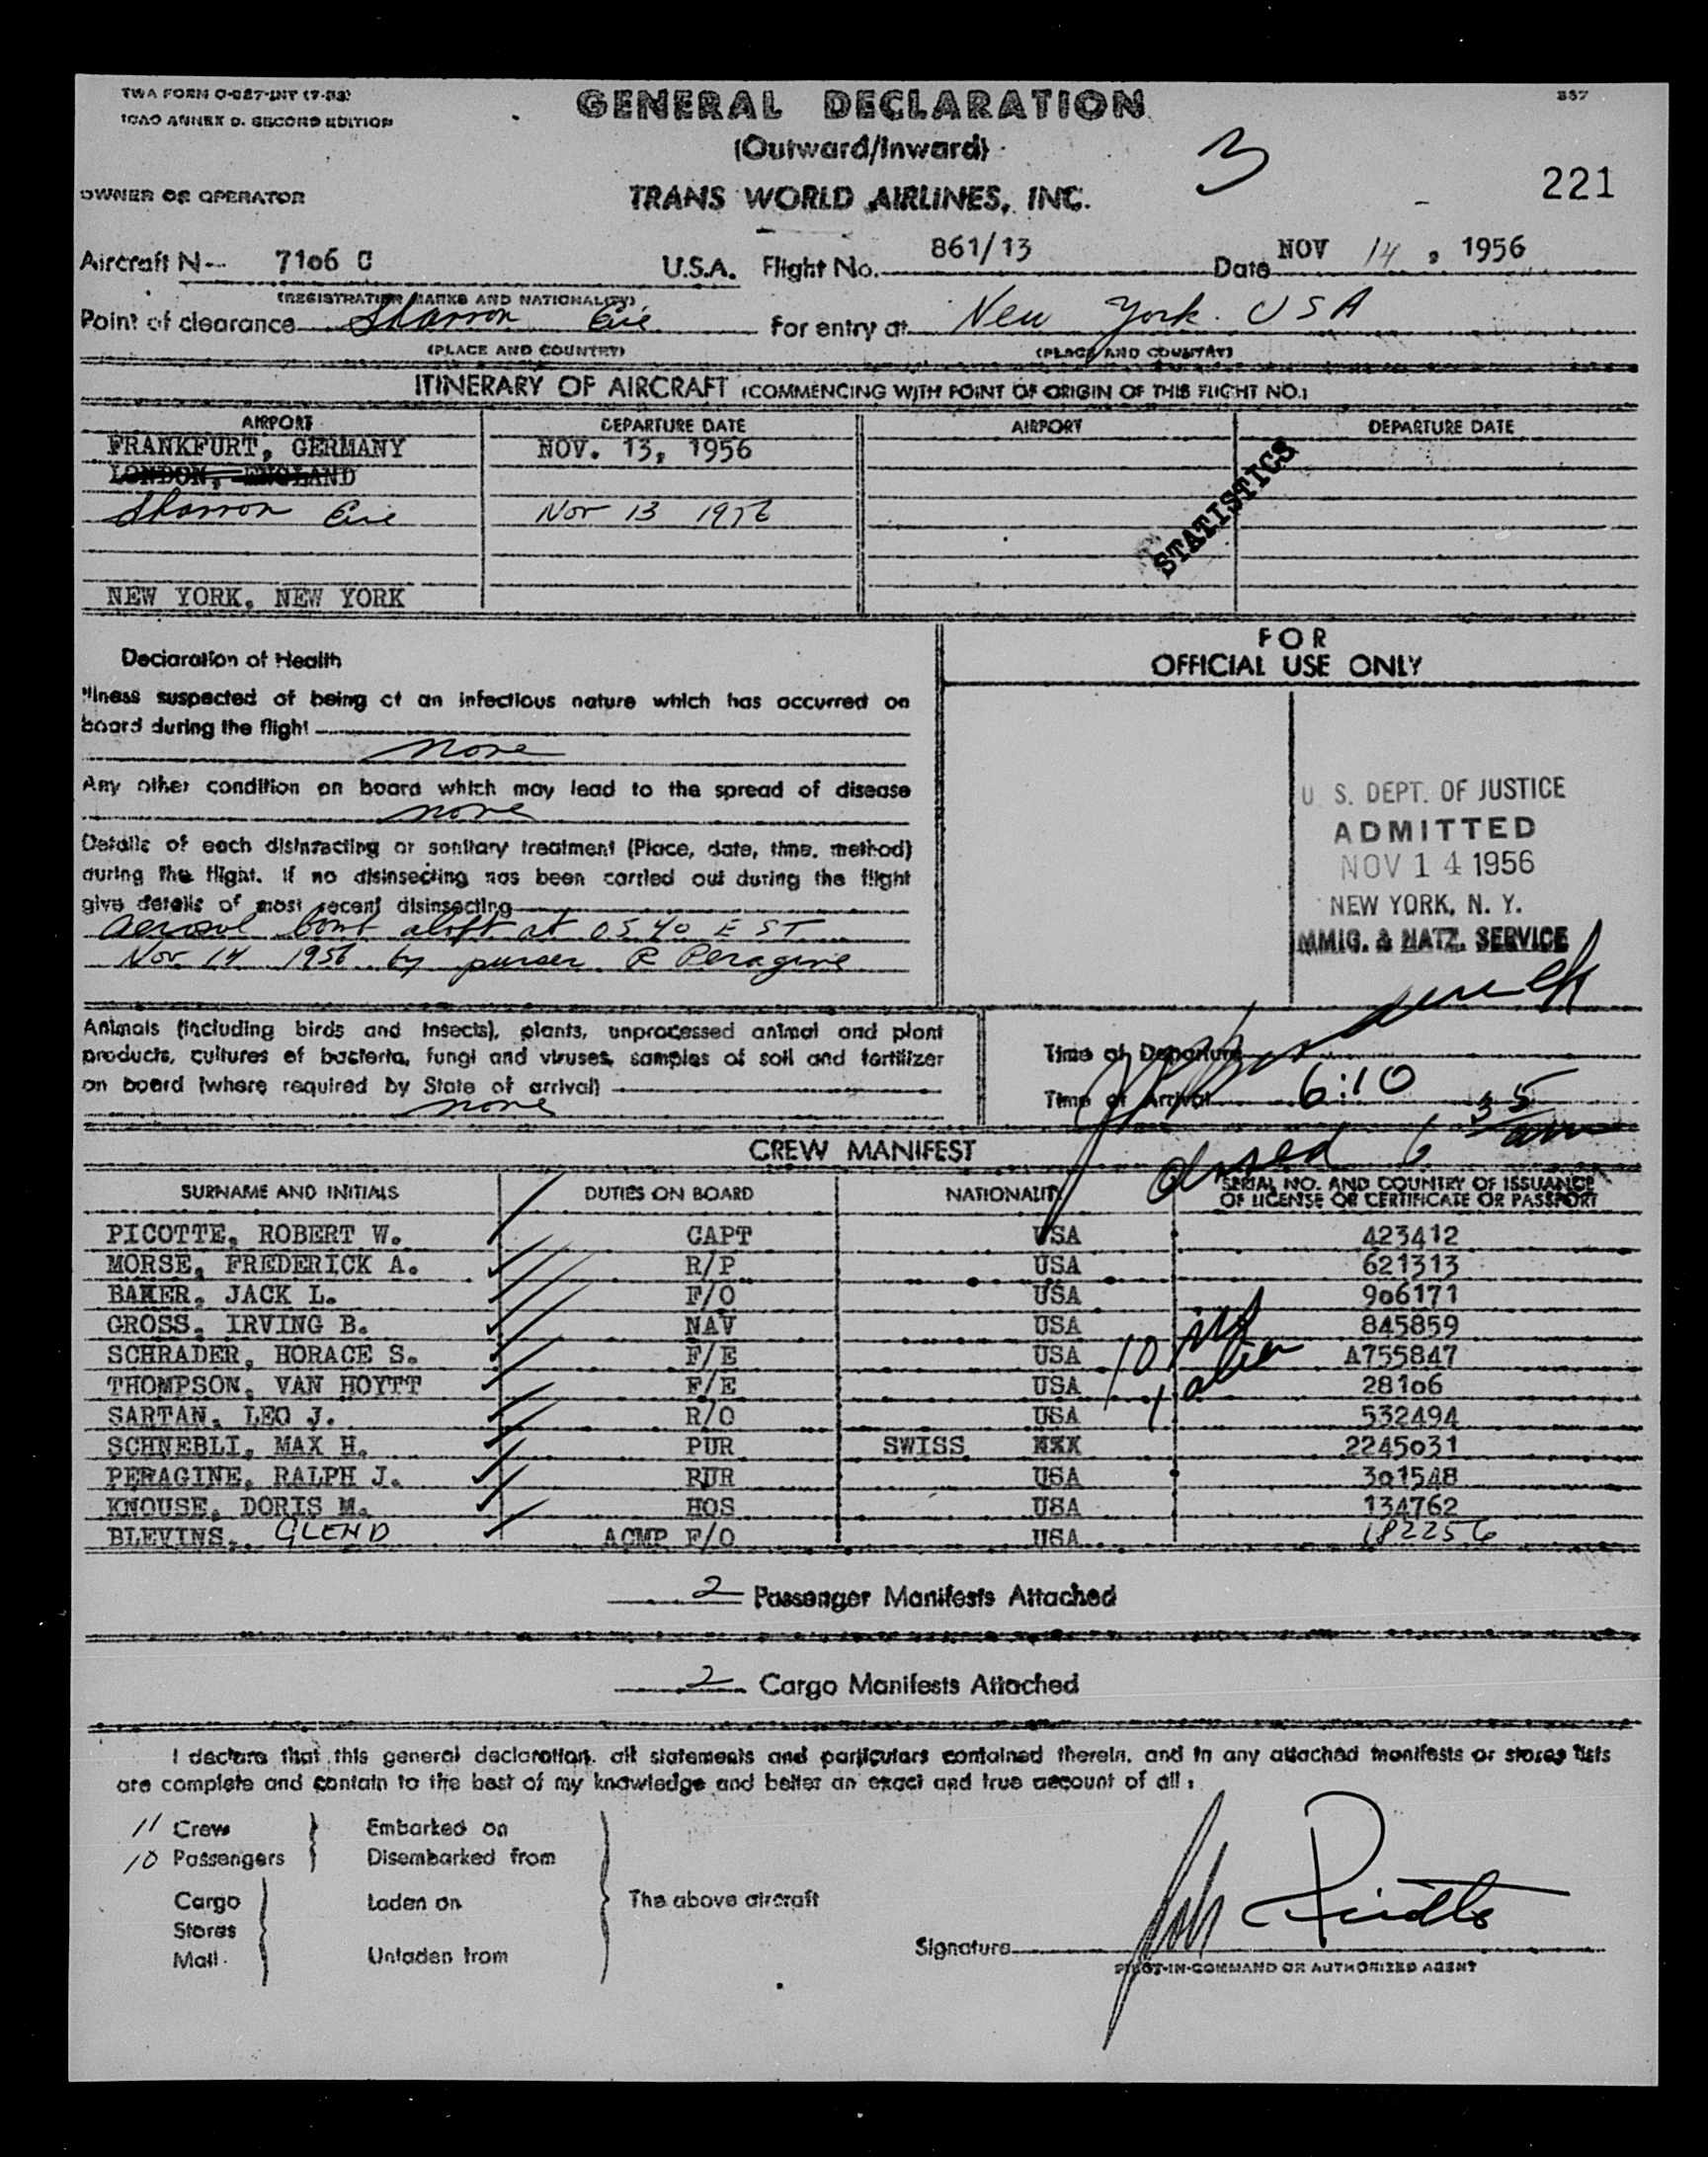 TWA FORM O-027-INT (7-53)
ICAO ANNEX 9. SECOND EDITION
GENERAL DECLARATION
357
(Outward/Inward)
3
221
OWNER OR OPERATOR
TRANS WORLD AIRLINES, INC.
Aircraft N-- 7106 C U.S.A. Flight No. 861/13 Date NOV 14, 1956
(REGISTRATION MARKS AND NATIONALITY)
Point of clearance Shannon Eire For entry at New York. USA
(PLACE AND COUNTRY) (PLACE AND COUNTRY)
ITINERARY OF AIRCRAFT (COMMENCING WITH POINT OF ORIGIN OF THIS FLIGHT NO.)
AIRPORT DEPARTURE DATE AIRPORT DEPARTURE DATE
FRANKFURT, GERMANY NOV. 13, 1956
LONDON, ENGLAND
Shannon Eire Nov 13 1956
STATISTICS
NEW YORK, NEW YORK
FOR
OFFICIAL USE ONLY
Declaration of Health
Illness suspected of being of an infectious nature which has occurred on
board during the flight
none
Any other condition on board which may lead to the spread of disease
none
Details of each disinsecting or sanitary treatment (Place, date, time, method)
during the flight. If no disinsecting has been carried out during the flight
give details of most recent disinsecting
aerosol bomb aloft at 0540 EST
Nov 14 1956 by purser R Peragine
U. S. DEPT. OF JUSTICE
ADMITTED
NOV 14 1956
NEW YORK, N. Y.
IMMIG. & NATZ. SERVICE
Animals (including birds and insects), plants, unprocessed animal and plant
products, cultures of bacteria, fungi and viruses, samples of soil and fertilizer
on board (where required by State of arrival)
none
Time of Departure
Time of Arrival 6:10
6 35 am
CREW MANIFEST
SURNAME AND INITIALS DUTIES ON BOARD NATIONALITY SERIAL NO. AND COUNTRY OF ISSUANCE
OF LICENSE OR CERTIFICATE OR PASSPORT
PICOTTE, ROBERT W. CAPT USA 423412
MORSE, FREDERICK A. R/P USA 621313
BAKER, JACK L. F/O USA 906171
GROSS, IRVING B. NAV USA 845859
SCHRADER, HORACE S. F/E USA A755847
THOMPSON, VAN HOYTT F/E USA 28106
SARTAN, LEO J. R/O USA 532494
SCHNEBLI, MAX H. PUR SWISS XXX 2245031
PERAGINE, RALPH J. PUR USA 301548
KNOUSE, DORIS M. HOS USA 134762
BLEVINS, GLEND ACMP F/O USA 182256
10
1 alien
2 Passenger Manifests Attached
2 Cargo Manifests Attached
I declare that this general declaration, all statements and particulars contained therein, and in any attached manifests or stores lists
are complete and contain to the best of my knowledge and belief an exact and true account of all:
11 Crew Embarked on
10 Passengers Disembarked from
Cargo Laden on The above aircraft
Stores
Mail Unladen from
Signature
PILOT-IN-COMMAND OR AUTHORIZED AGENT